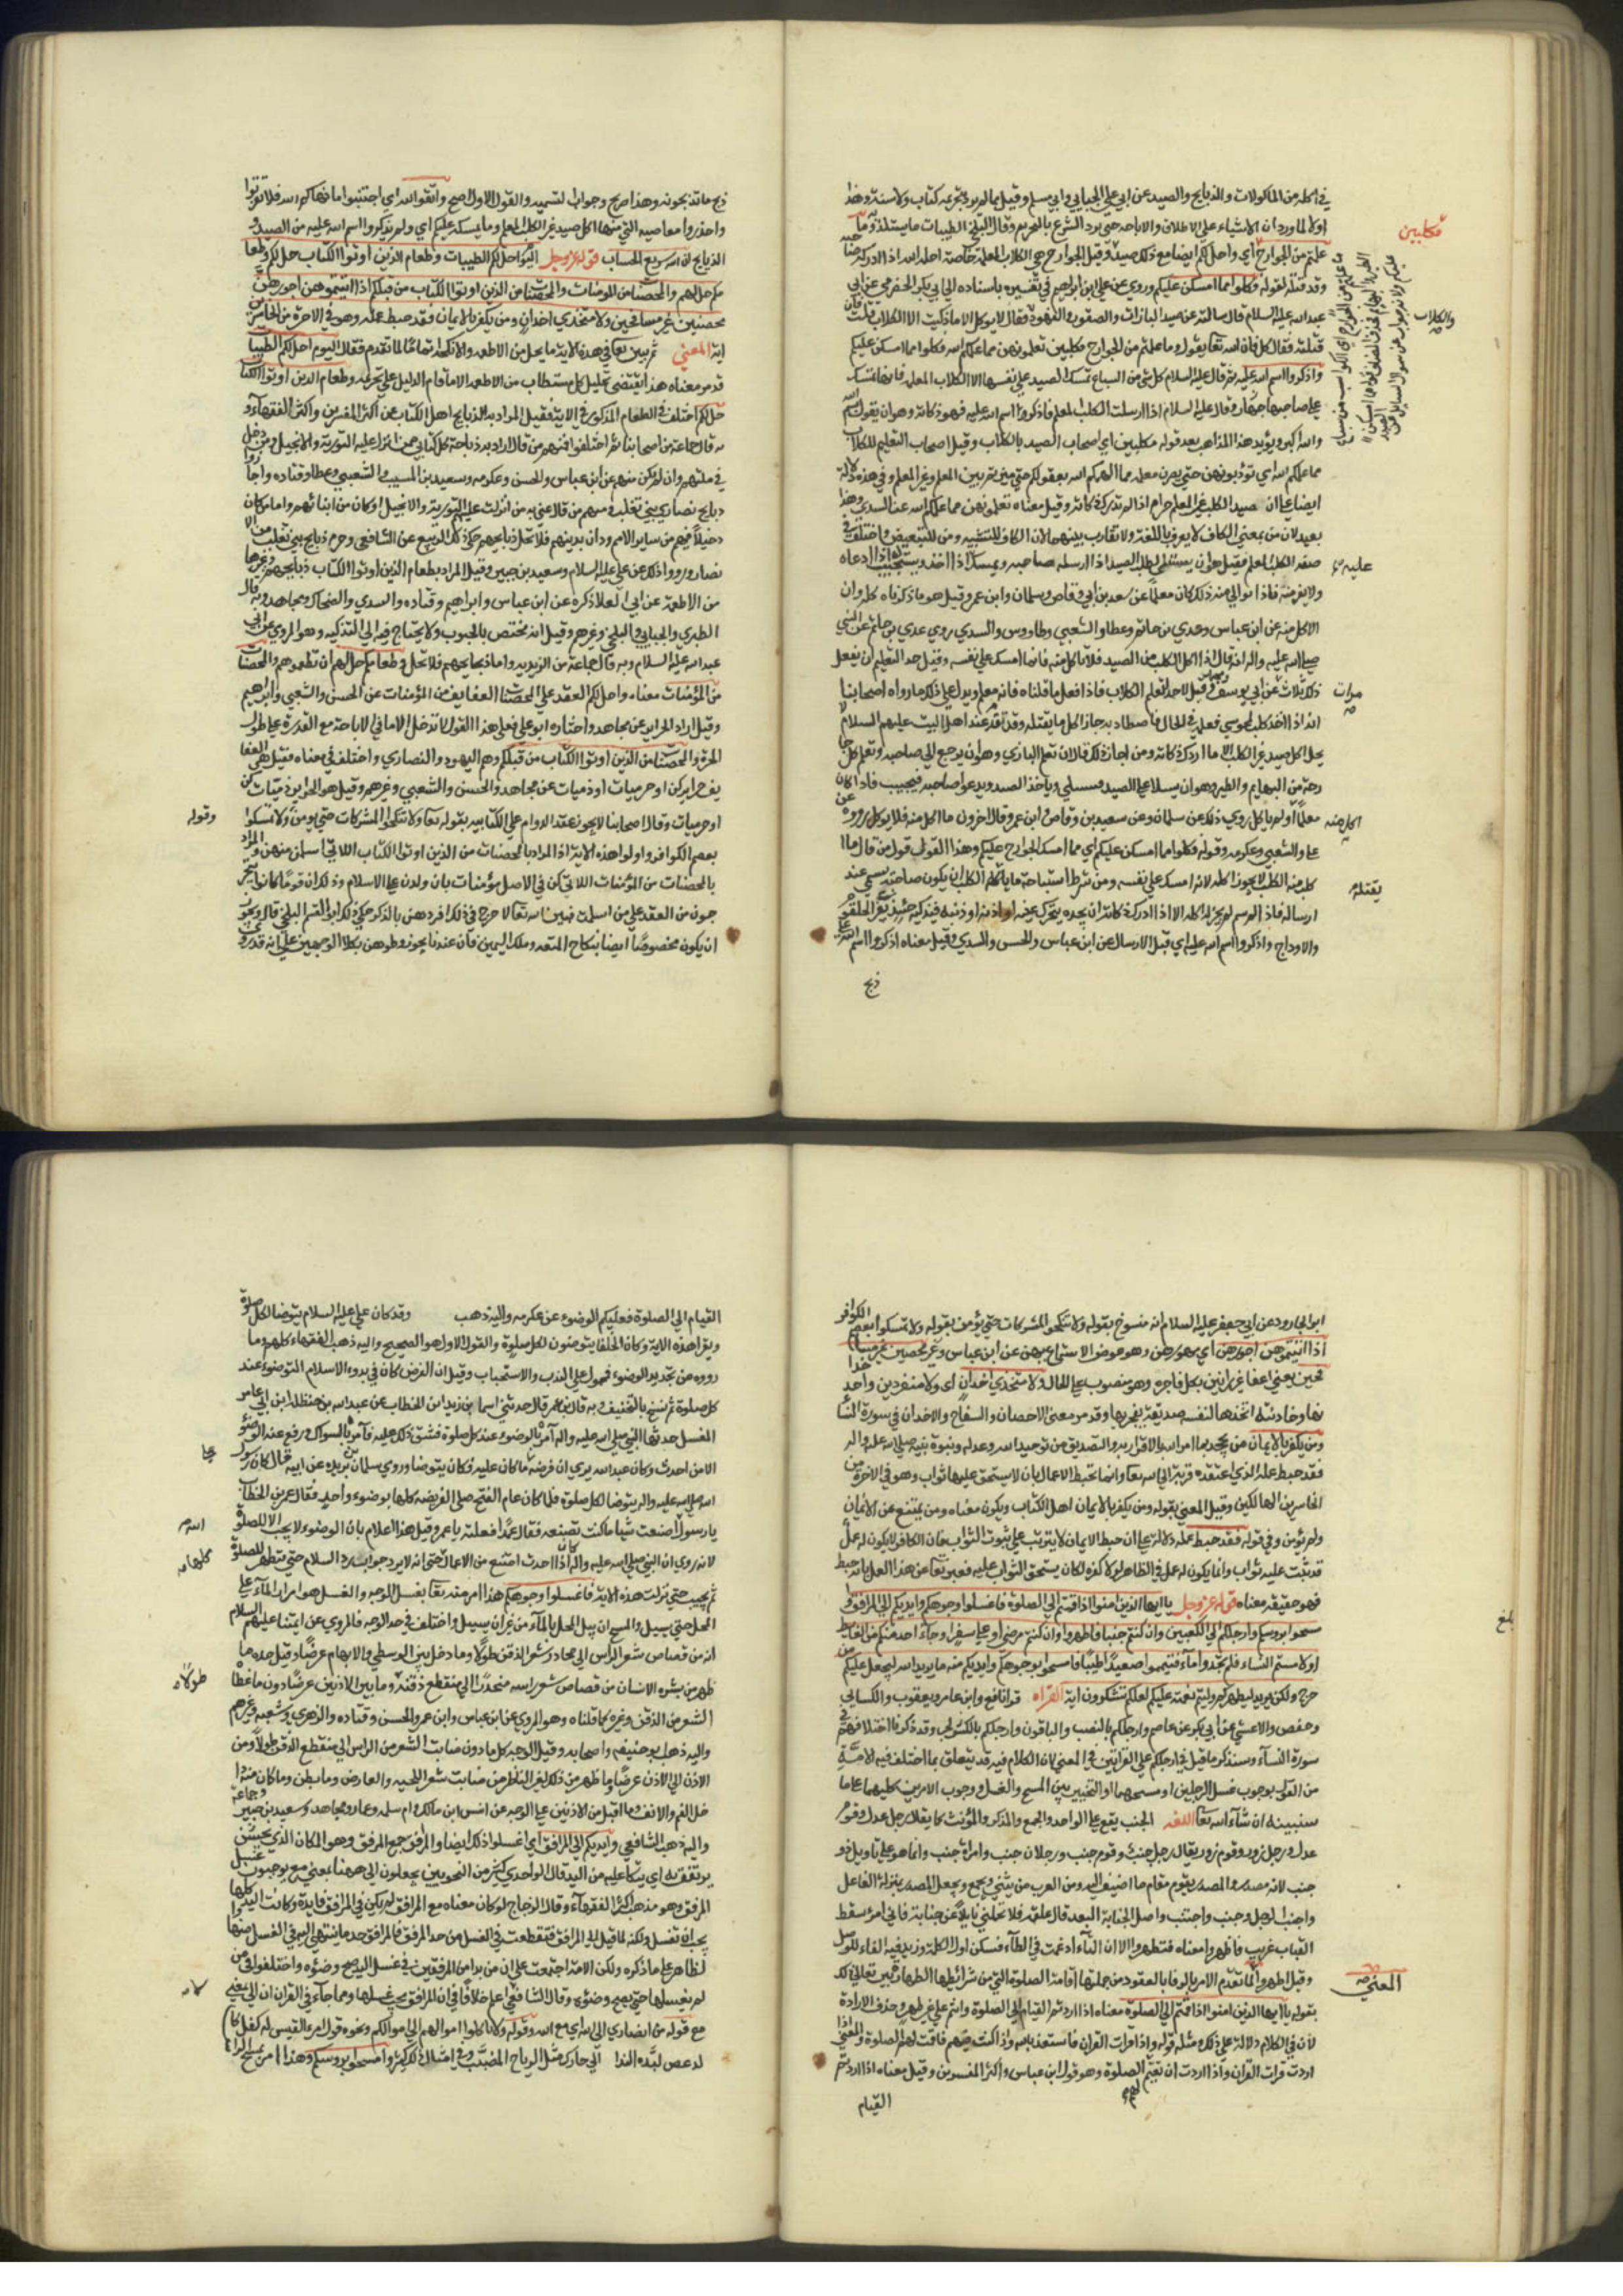 في اكله من الماكولات والذبايح والصيد عن ابي علي الجبايي وابي مسلم وقيل مما لم يرد بتحريمه كتاب ولا سنة وهذا
اولي لما ورد ان الاشياء علي الاطلاق والاباحه حتي يرد الشرع بالتحريم وقال البلخي الطيبات ما يستلذ وما
علمتم من الجوارح اي واحل لكم ايضا مع ذلك صيد وقيل الجوارح هي الكلاب المعلمة خاصة احله الله اذا ادركه صاحبه
وقد قتله لقوله فكلوا مما امسكن عليكم وروي عن علي بن ابراهيم في تفسيره باسناده الي ابي بكر الحضرمي عن ابي
عبد الله عليه السلام قال سالته عن صيد البازات والصقور والفهود فقال لا يوكل الا ما ذكيت الا الكلاب قلت فان
قتلته فقال كل فان الله تعا يقول وما علمتم من الجوارح مكلبين تعلمونهن مما علمكم الله فكلوا مما امسكن عليكم
واذكروا اسم الله عليه ثم قال عليه السلام كل شي من السباع تمسك الصيد علي نفسها الا الكلاب المعلمه فانها تمسك
علي صاحبها وقال عليه السلام اذا ارسلت الكلب المعلم فاذكروا اسم الله عليه فهو ذكاته وهو ان يقول بسم الله
والله اكبر ويؤيد هذا المذاهب بعد قوله مكلبين اي اصحاب الصيد بالكلاب وقيل اصحاب التعليم للكلاب
مما علمكم الله اي تؤدبونهن حتي يصرن معلمه مما الهمكم الله بعقولكم حتي ميزتم بين المعلم وغير المعلم وفي هذه دلالة
ايضا علي ان صيد الكلب غير المعلم حرام اذا لم تدرك ذكاته وقيل معناه تعلمونهن مما علمكم الله عن السدي وهذا
بعيد لان من بمعني الكاف لا يعرف باللغة ولا تقارب بينهما لان الكاف للتشبيه ومن للتبعيض واختلف في
صفه الكلب المعلم فقيل هو ان يستشلي لطلب الصيد اذا ارسله صاحبه ويمسك اذا اخذ ويستجيب اذا دعاه
ولا يفر منه فاذا توالي منه ذلك كان معلما عن سعد بن ابي وقاص وسلمان وابن عمر وقيل هو ما ذكرناه كله وان
الاكل منه عن ابن عباس وعدي بن حاتم وعطا والشعبي وطاووس والسدي روي عدي بن حاتم عن النبي
صلي الله عليه واله انه قال اذا اكل الكلب من الصيد فلا تاكل منه فانما امسك علي نفسه وقيل حد التعليم ان يفعل
ذلك ثلاث عن ابي يوسف وقيل لا حد لتعلم الكلاب فاذا فعل ما قلناه فانه معلم ويدل علي ذلك ما رواه اصحابنا
انه اذا اخذ كلب مجوسي فعلمه في الحال فاصطاد به جاز اكل ما يقتله وقد تقدم عند اهل البيت عليهم السلام لا
يحل اكل صيد غير الكلب الا ما ادرك ذكاته ومن اجاز ذلك قال ان تعلم البازي وهو ان يرجع الي صاحبه وتعلم كل جا
رحة من البهايم والطير وهو ان يسلا علي الصيد فيستشلي وياخذ الصيد ويدعو صاحبه فيجيب فاذا كان
معلما او لم ياكل روي ذلك عن سلمان وعن سعيد بن وقاص وابن عمر وقال اخرون ما اكل منه فلا يوكل رووه عن
علي والشعبي وعكرمه وقوله فكلوا مما امسكن عليكم اي مما امسك الجوارح عليكم وهذا القول قول من قال ما
كلبه منه الكلب لا يجوز اكله لانه امسك علي نفسه ومن شرط استباحة ما ياكله الكلب ان يكون صاحبه سمي عند
ارساله فاذا لم يسم لم يجز له اكله الا اذا ادرك ذكاته ان يجده يتحرك عينه او اذنه او ذنبه فيذكيه حينئذ بفري الحلقوم
والاوداج واذكروا اسم الله عليه اي قبل الارسال عن ابن عباس والحسن والسدي وقيل معناه اذكروا اسم الله علي
ذبح
مكلبين
والكلاب
عليه
مرات
اكل منه
يقتله
ذبح ما تذبحونه وهذا صريح وجواب التسميه والقول الاول اصح واتقوا الله اي اجتنبوا ما نهاكم الله فلا تقربوا
واحذروا معاصيه التي منها اكل صيد غير الكلب المعلم وما يمسكه عليكم اي ولم يذكروا اسم الله عليه من الصيد و
الذبايح ان الله سريع الحساب قوله عز وجل اليوم احل لكم الطيبات وطعام الذين اوتوا الكتاب حل لكم وطعا
مكم حل لهم والمحصنات من المومنات والمحصنات من الذين اوتوا الكتاب من قبلكم اذا اتيتموهن اجورهن
محصنين غير مسافحين ولا متخذي اخدان ومن يكفر بالايمان فقد حبط عمله وهو في الاخرة من الخاسرين
اية المعني ثم بين تعا في هذه الاية ما يحل من الاطعمه والانكحه تماما لما تقدم فقال اليوم احل لكم الطيبات
قد مر معناه هذا يقتضي تحليل كل مستطاب من الاطعمه الا ما قام الدليل علي تحريمه وطعام الذين اوتوا الكتاب
حل لكم اختلف في الطعام المذكور في الاية فقيل المراد به الذبايح اهل الكتاب عن اكثر المفسرين واكثر الفقها و
به قال جماعة من اصحابنا ثم اختلفوا فمنهم من قال اراد به ذباحة كل كتابي ممن انزل عليه التورية والانجيل ومن دخل
في ملتهم وان لم يكن منهم عن ابن عباس والحسن وعكرمه وسعيد بن المسيب والشعبي وعطا وقتاده واجازوا
ذبايح نصاري بني تغلب ومنهم من قال عني به من انزلت عليهم التورية والانجيل او كان من ابنائهم واما من كان
دخيلا فيهم من ساير الامم ودان بدينهم فلا تحل ذبايحهم حكي ذلك الربيع عن الشافعي وحرم ذبايح بني تغلب من
نصاري ورووا ذلك عن علي عليه السلام وسعيد بن جبير وقيل المراد بطعام الذين اوتوا الكتاب ذبايحهم وغيرها
من الاطعمة عن ابي الدرداء ذكره عن ابن عباس وابراهيم وقتاده والسدي والضحاك ومجاهد وبه قال
الطبري والجبايي والبلخي وغيرهم وقيل انه مختص بالحبوب ولا يحتاج فيه الي التذكيه وهو المروي عن ابي
عبد الله عليه السلام وبه قال جماعة من الزيديه واما ذبايحهم فلا تحل وطعامكم حل لهم ان تطعموهم والمحصنات
من المؤمنات معناه واحل لكم العقد علي المحصنات العفايف من المؤمنات عن الحسن والشعبي وابراهيم
وقيل اراد الحراير عن مجاهد واختاره ابو علي فعلي هذا القول لا تدخل الاما في الاباحة مع القدرة علي طول
الحرة والمحصنات من الذين اوتوا الكتاب من قبلكم وهم اليهود والنصاري واختلف في معناه فقيل هن العفا
يف حراير كن او حربيات او ذميات عن مجاهد والحسن والشعبي وغيرهم وقيل هو الحراير ذميات كن
او حربيات وقال اصحابنا لا يجوز عقد الدوام علي الكتابيه بقوله تعا ولا تنكحوا المشركات حتي يومن ولا تمسكوا
بعصم الكوافر واولوا هذه الاية اذا المراد بالمحصنات من الذين اوتوا الكتاب اللاتي اسلمن منهن والمراد
بالمحصنات من المؤمنات اللاتي كن في الاصل مؤمنات بان ولدن علي الاسلام وذلك ان قوما كانوا يتحر
جون من العقد علي من اسلمت فبين الله تعا لا حرج في ذلك افردهن بالذكر حكي ذلك ابو القسم البلخي قال ويجوز
ان يكون مخصوصا ايضا بنكاح المتعه وملك اليمين فان عندنا يجوز وطوهن بكلا الوجهين علي انه قد روي
وقوله
ابو الجارود عن ابي جعفر عليه السلام انه منسوخ بقوله ولا تنكحوا المشركات حتي يؤمن بقوله ولا تمسكوا بعصم الكوافر
اذا اتيتموهن اجورهن اي مهورهن وهو عوض الاستمتاع بهن عن ابن عباس وغيره محصنين غير مسا
فحين يعني اعفا غير زانين بكل فاجره وهو منصوب علي الحال ولا متخذي اخدان اي ولا متفردين واحد خدا
نها وخادنته اتخذها لنفسه صديقة يفجر بها وقد مر معني الاحصان والسفاح والاخدان في سورة النسا
ومن يكفر بالايمان من يجحد ما امر الله بالاقرار به والتصديق من توحيد الله وعدله ونبوة نبيه صلي الله عليه واله
فقد حبط عمله الذي اعتقده قربة الي الله تعا وانما تحبط الاعمال بان لا يستحق عليها ثواب وهو في الاخرة من
الخاسرين الهالكين وقيل المعني بقوله ومن يكفر بالايمان اهل الكتاب ويكون معناه ومن يمتنع عن الايمان
ولم يؤمن وفي قوله فقد حبط عمله دلالة علي ان حبط الايمان لا يترتب علي ثبوت الثواب فان الكافر لا يكون له عمل
قد ثبت عليه ثواب وانما يكون له عمل في الظاهر لولا كفره لكان يستحق الثواب عليه فعبر تعا عن هذا العمل بانه حبط
فهو حقيقه معناه قوله عز وجل يا ايها الذين امنوا اذا قمتم الي الصلوة فاغسلوا وجوهكم وايديكم الي المرافق وا
مسحوا بروسكم وارجلكم الي الكعبين وان كنتم جنبا فاطهروا وان كنتم مرضي او علي سفر او جاء احد منكم من الغايط
اولامستم النساء فلم تجدوا ماء فتيمموا صعيدا طيبا فامسحوا بوجوهكم وايديكم منه ما يريد الله ليجعل عليكم من
حرج ولكن يريد ليطهركم وليتم نعمته عليكم لعلكم تشكرون اية القراه قرا نافع وابن عامر ويعقوب والكسايي
وحفص والاعشي عن ابي بكر عن عاصم وارجلكم بالنصب والباقون وارجلكم بالكسر وقد ذكرنا اختلافهم في
سورة النساء وسنذكر ما قيل في ارجلكم علي القراتين في المعني لان الكلام فيه قد يتعلق بما اختلف فيه الامة
من القول بوجوب غسل الرجلين او مسحهما او التخيير بين المسح والغسل ووجوب الامرين كليهما علي ما
سنبينه ان شاء الله تعا اللغه الجنب يقع علي الواحد والجمع والمذكر والمؤنث كما يقال رجل عدل وقوم
عدل ورجل زور وقوم زور يقال رجل جنب وقوم جنب ورجلان جنب وامراة جنب وانما هو علي تاويل ذو
جنب لانه مصدر والمصدر يقوم مقام ما اضيف اليه ومن العرب من يثني ويجمع ويجعل المصدر بمنزلة الفاعل
واجنب الرجل وجنب واجتنب واصل الجنابة البعد قال علقمه فلا تحرمني نايلا عن جنابة فاني امرؤ وسط
القباب غريب فاطهروا معناه فتطهروا الا ان التاء ادغمت في الطاء فسكن اول الكلمة وزيد فيه الف للوصل
وقيل اطهروا لما تقدم الامر بالوفا بالعقود من جملتها اقامة الصلوة التي من شرائطها الطهارة بين تعالي ذلك
بقوله يا ايها الذين امنوا اذا قمتم الي الصلوة معناه اذا اردتم القيام الي الصلوة وانتم علي غير طهر وحذف الارادة
لان في الكلام دلالة علي ذلك ومثله قوله واذا قرات القران فاستعذ بالله واذا كنت فيهم فاقمت لهم الصلوة والمعني اذا
اردت قرات القران واذا اردت ان تقيم لهم الصلوة وهو قول ابن عباس واكثر المفسرين وقيل معناه اذا اردتم
القيام
بلغ
المعني
القيام الي الصلوة فعليكم الوضوء عن عكرمه واليه ذهب وقد كان علي عليه السلام يتوضا لكل صلوة
ويقرا هذه الاية وكان الخلفا يتوضون لكل صلوة والقول الاول هو الصحيح واليه ذهب الفقهاء كلهم وما
رووه من تجديد الوضوء فمحمول علي الندب والاستحباب وقيل ان الفرض كان في بدء الاسلام التوضوء عند
كل صلوة ثم نسخ بالتخفيف وبه قال ابن عمر قال حدثتني اسما بن زيد ابن الخطاب عن عبد الله بن حنظلة ابن ابي عامر
الغسيل حدثها النبي صلي الله عليه واله امر بالوضوء عند كل صلوة فشق ذلك عليه فامر بالسواك ورفع عنه الوضوء
الا من احدث وكان عبد الله يري ان فرضه ما كان عليه فكان يتوضا وروي سلمان بن بريده عن ابيه قال كان رسول
الله صلي الله عليه واله يتوضا لكل صلوة فلما كان عام الفتح صلي الفريضه كلها بوضوء واحد فقال عمر بن الخطاب
يا رسول صنعت شيا ما كنت تصنعه فقال عمدا فعلته يا عمر وقيل هذا اعلام بان الوضوء لا يجب الا للصلوة
لانه روي ان النبي صلي الله عليه واله كان اذا احدث امتنع من الاعمال حتي انه لا يرد جواب رد السلام حتي يتطهر للصلوة
ثم يجيب حتي نزلت هذه الاية فاغسلوا وجوهكم هذا امر منه تعا بغسل الوجه والغسل هو امرار الماء علي
المحل حتي يسيل والمسح ان يبل المحل بالماء من غير ان يسيل واختلف في حد الوجه فالمروي عن ائمتنا عليهم السلام
انه من قصاص شعر الراس الي محادر شعر الذقن طولا وما دخل بين الوسطي والابهام عرضا وقيل حده ما
ظهر من بشرة الانسان من قصاص شعر راسه منحدرا الي منقطع ذقنه وما بين الاذنين عرضا دون ما غطاه
الشعر من الذقن وغيره كما قلناه وهو المروي عن ابن عباس وابن عمر والحسن وقتاده والزهري والشعبي وغيرهم
واليه ذهب ابو حنيفه واصحابه وقيل الوجه كل ما دون منابت الشعر من الراس الي منقطع الذقن طولا ومن
الاذن الي الاذن عرضا ما ظهر من ذلك لعين الناظر من منابت شعر اللحيه والعارض وما بطن وما كان منه دا
خل الفم والانف وما اقبل من الاذنين علي الوجه عن انس ابن مالك وام سلمه وعمار ومجاهد وسعيد بن جبير وجماعة
واليه ذهب الشافعي وايديكم الي المرافق اي اغسلوا ذلك ايضا والمرافق جمع المرفق وهو المكان الذي
يرتفق به اي يتكا عليه من اليد قال الواحدي كثير من النحويين يجعلون الي ههنا بمعني مع يوجبون غسل
المرفق وهو مذهب اكثر الفقهاء وقال الزجاج لو كان معناه مع المرافق لم يكن في المرافق فايدة وكانت اليد كلها
يجب ان تغسل ولكنه لما قيل الي المرافق فتقطعت في الغسل من حد المرفق فالمرافق حد ما ينتهي اليه في الغسل منها
لظاهر علي ما ذكره ولكن الامة اجتمعت علي ان من بدا من المرفقين في غسل اليد صح وضؤه واختلفوا في من
لم يغسلها حتي يصح وضؤه وقال الشافعي لا اعلم خلافا في ان المرافق يجب غسلها ومما جاء في القران الي بمعني
مع قوله من انصاري الي الله اي مع الله وقوله ولا تاكلوا اموالهم الي اموالكم ونحوه قول امرء القيس له كفل كا
لدعص لبده الندا الي حارك مثل الرتاج المضبب وفي امثال ذلك كثر وامسحوا بروسكم وهذا امر بمسح الراس
علي
الله
كلها
طولا